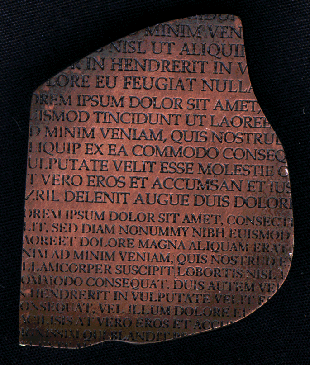 MINIM VEN
NISL UT ALIQUI
IN HENDRERIT IN
LORE EU FEUGIAT NULLA
REM IPSUM DOLOR SIT AMET
ISMOD TINCIDUNT UT LAORE
D MINIM VENIAM, QUIS NOSTRUD
LIQUIP EX EA COMMODO CONSEQ
ULPUTATE VELIT ESSE MOLESTIE C
T VERO EROS ET ACCUMSAN ET IUS
ZRIL DELENIT AUGUE DUIS DOLOR
OREM IPSUM DOLOR SIT AMET, CONSECT
LIT, SED DIAM NONUMMY NIBH EUISMOD
AOREET DOLORE MAGNA ALIQUAM ERAT
NIM AD MINIM VENIAM, QUIS NOSTRUD E
LLAMCORPER SUSCIPIT LOBORTIS NISL
OMMODO CONSEQUAT. DUIS AUTEM VEL
HENDRERIT IN VULPUTATE VELIT E
NSEQUAT, VEL ILLUM DOLORE E
CILISIS AT VERO EROS ET ACC
QUI BLANDIT